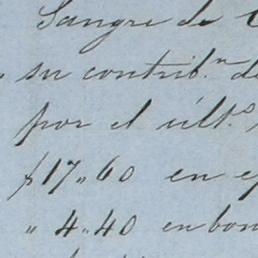 Sangre de C
su contrib.n de
por el últ.o
$17,,60 en e
,, 4,,40 en bon